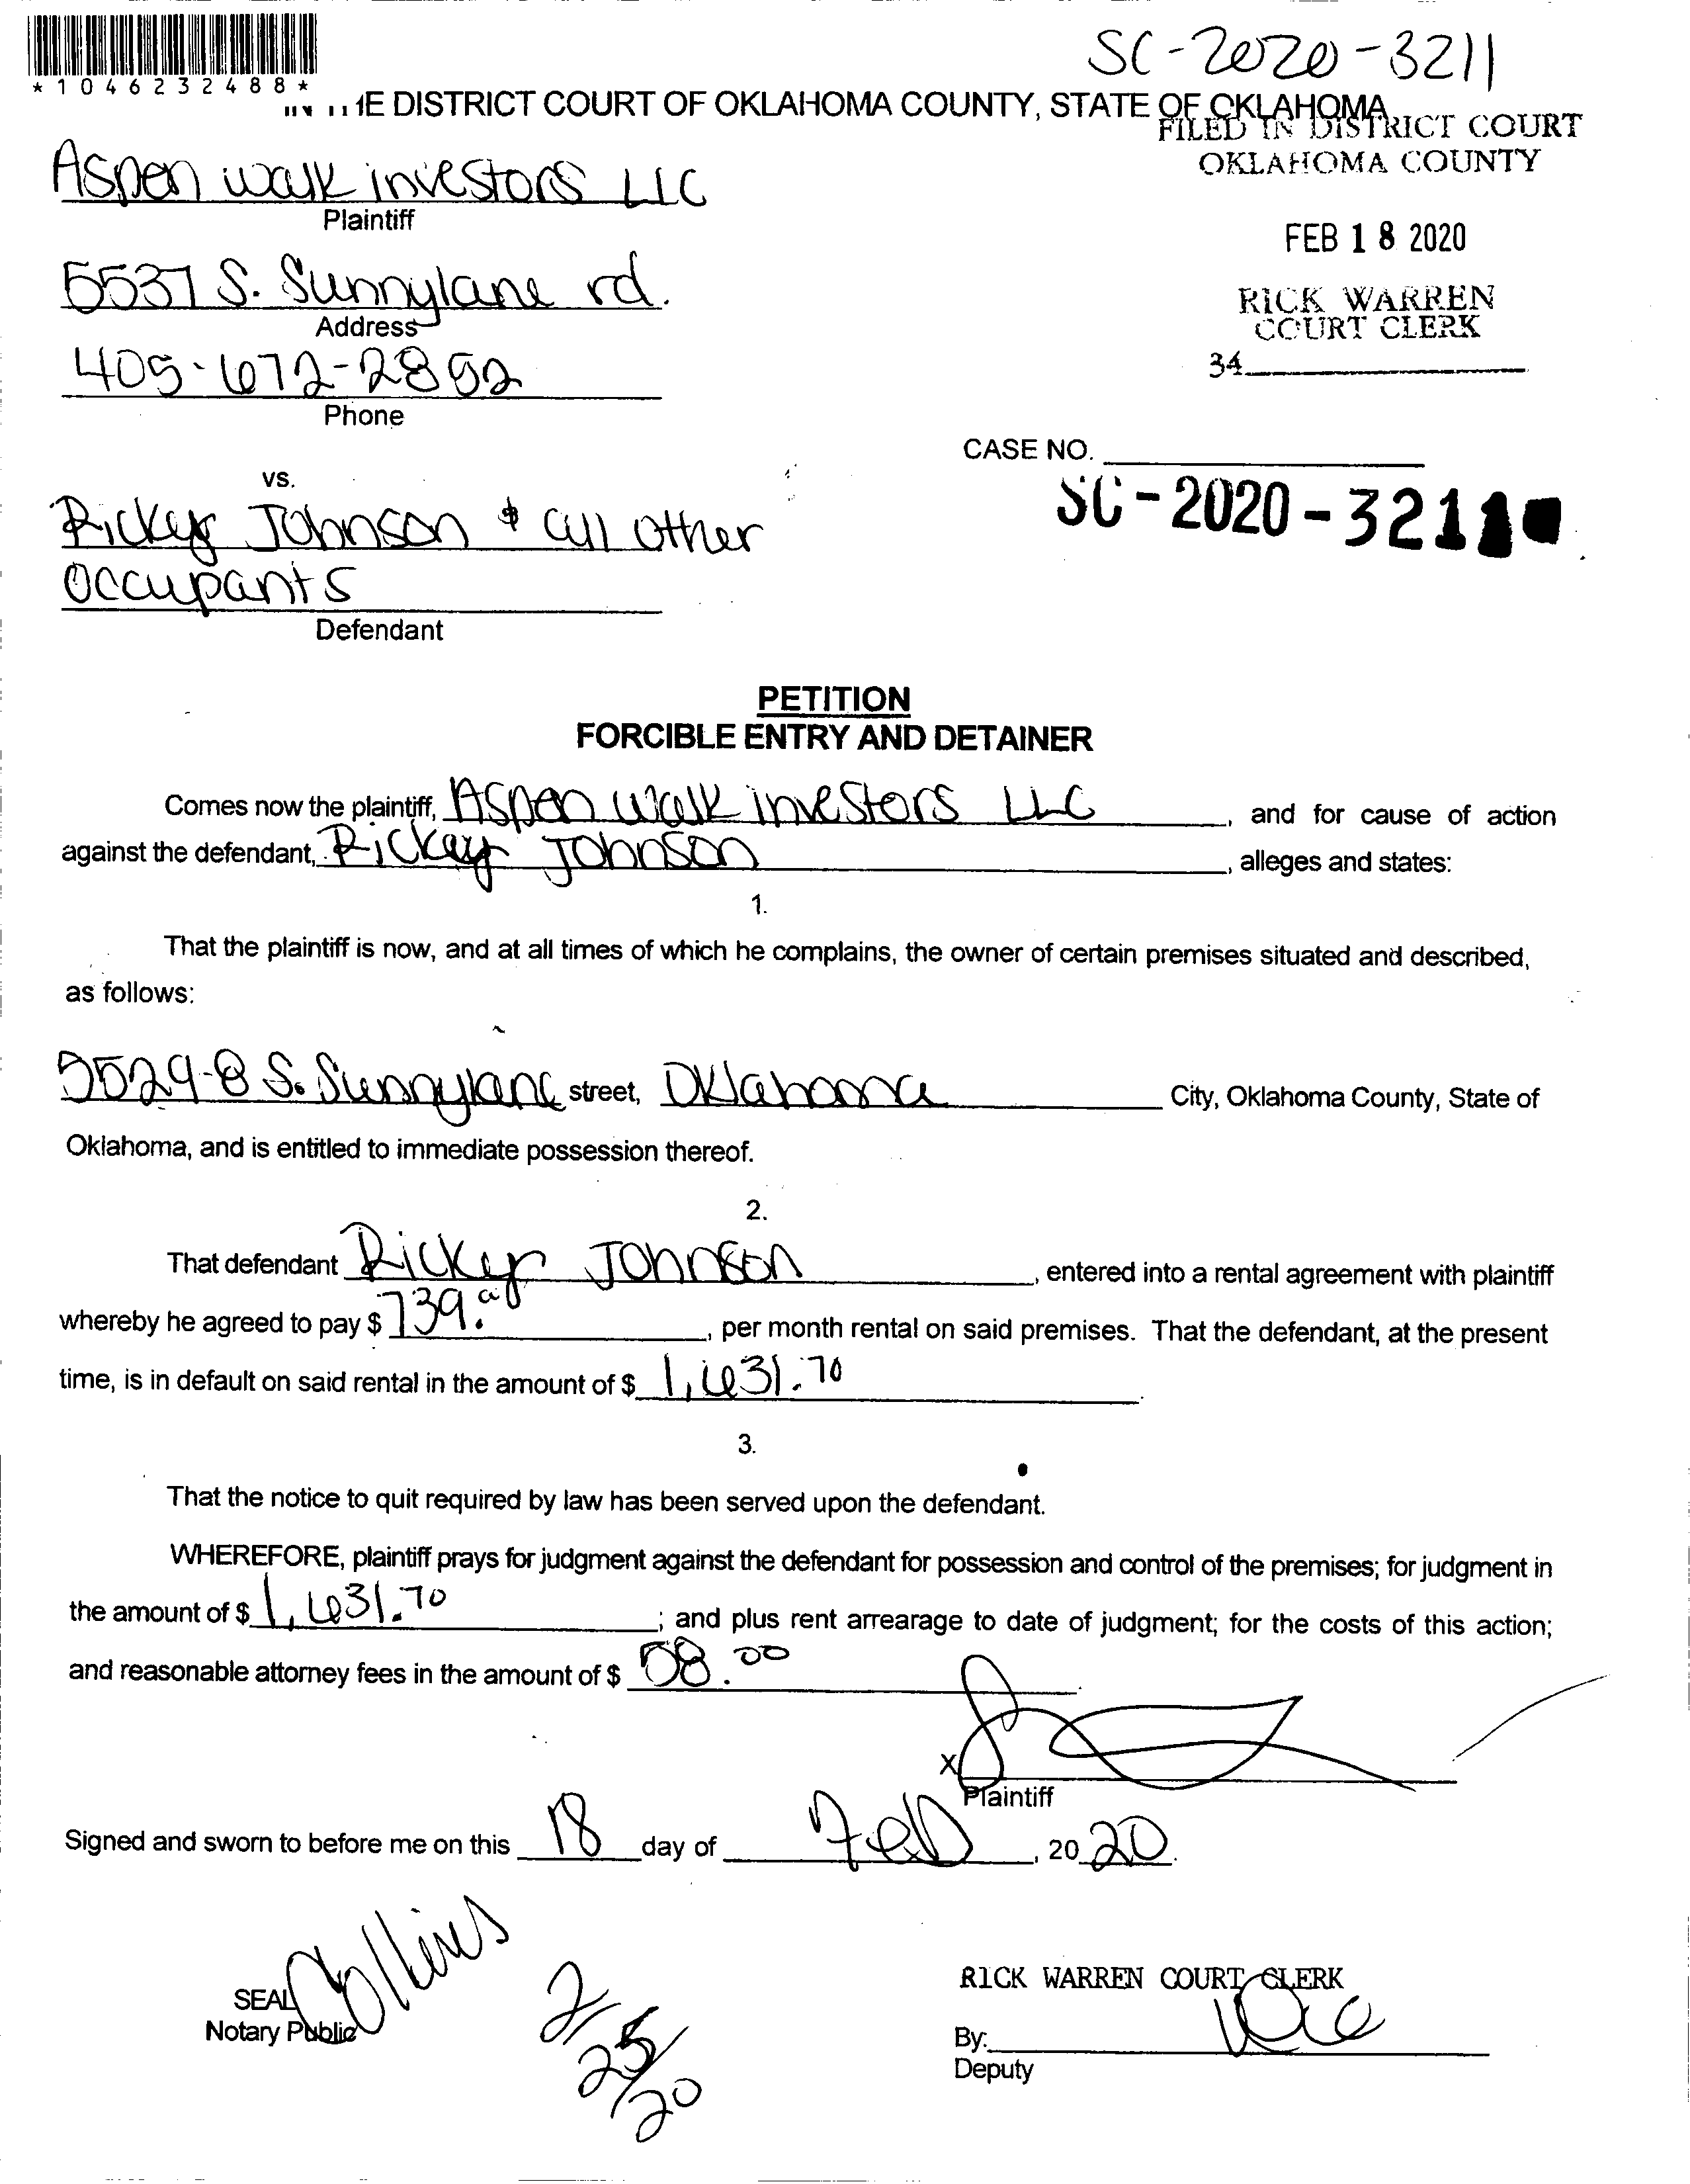 SC-2020-3211
*1046232488*
IN THE DISTRICT COURT OF OKLAHOMA COUNTY, STATE OF OKLAHOMA
FILED IN DISTRICT COURT
OKLAHOMA COUNTY
Aspen walk investors LLC
Plaintiff
FEB 18 2020
5537 S. Sunnylane rd.
Address
RICK WARREN
COURT CLERK
405-672-2852
34
Phone
CASE NO.
SC-2020-3211
vs.
Rickey Johnson & all other
occupants
Defendant
PETITION
FORCIBLE ENTRY AND DETAINER
Comes now the plaintiff, Aspen walk investors LLC, and for cause of action
against the defendant, Rickey Johnson, alleges and states:
1.
That the plaintiff is now, and at all times of which he complains, the owner of certain premises situated and described,
as follows:
5529-B S. Sunnylane street, Oklahoma City, Oklahoma County, State of
Oklahoma, and is entitled to immediate possession thereof.
2.
That defendant Rickey Johnson, entered into a rental agreement with plaintiff
whereby he agreed to pay $ 739., per month rental on said premises. That the defendant, at the present
time, is in default on said rental in the amount of $ 1,631.70.
3.
That the notice to quit required by law has been served upon the defendant.
WHEREFORE, plaintiff prays for judgment against the defendant for possession and control of the premises; for judgment in
the amount of $ 1,631.70; and plus rent arrearage to date of judgment; for the costs of this action;
and reasonable attorney fees in the amount of $ 58.00.
X
Plaintiff
Signed and sworn to before me on this 18 day of Feb, 2020.
Collins
SEAL
Notary Public
2/25/20
RICK WARREN COURT CLERK
By:
Deputy